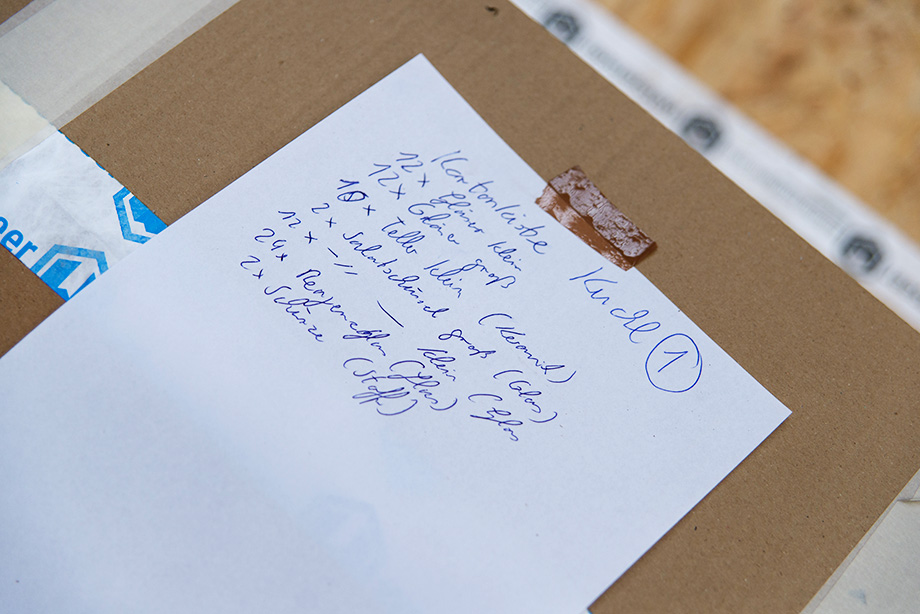 Kartonliste Küchl 1
12x Gläser klein
12x Gläser groß
10x Teller klein (Keramik)
2x Salatschüssel groß (Glas)
12x -"- klein (Glas)
24x (Glas)
2x Schürze (Stoff)
per